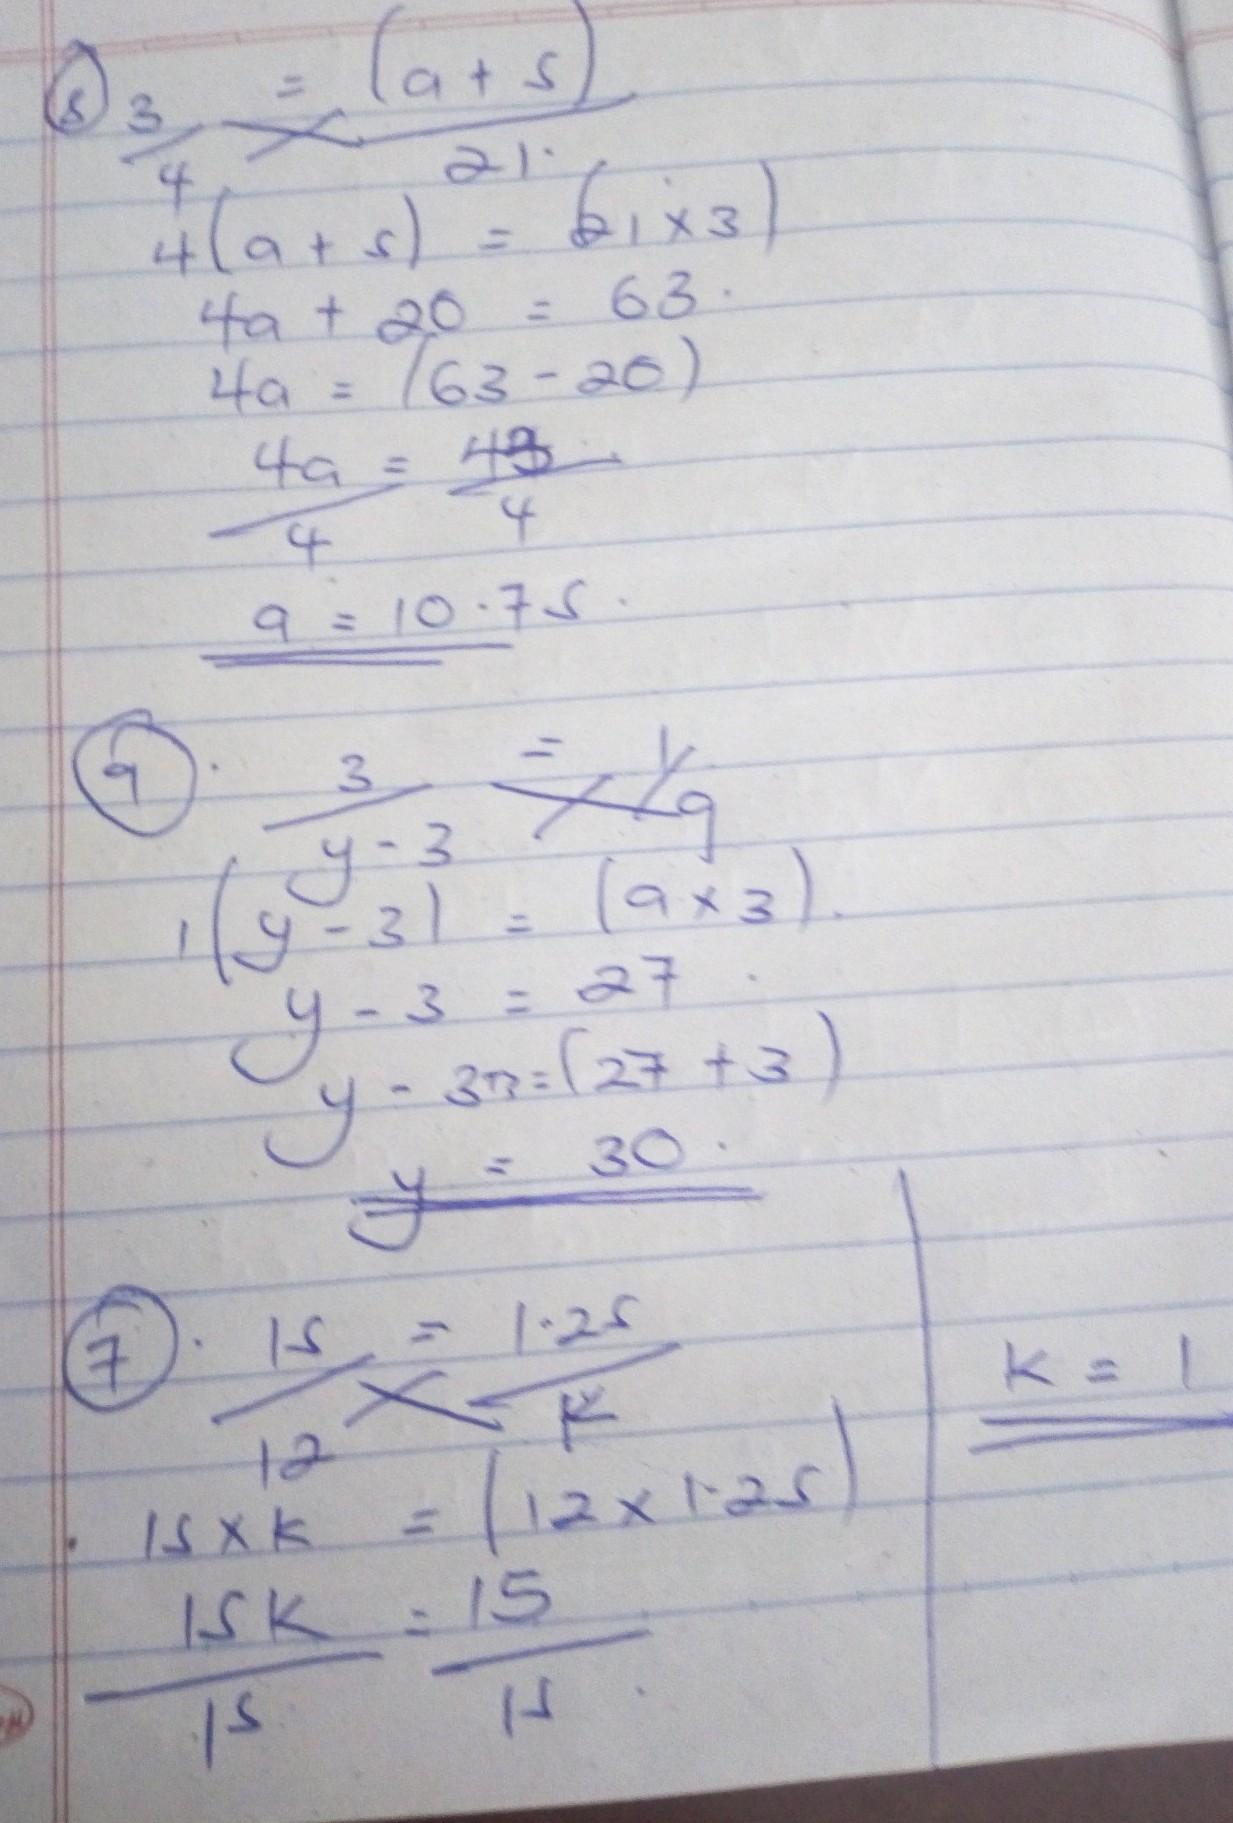 8) 3/4 = (a + 5)/21.
4(a + 5) = (21 x 3)
4a + 20 = 63.
4a = (63 - 20)
4a/4 = 43/4
a = 10.75.
9. 3/y - 3 = 1/9
1(y - 3) = (9 x 3).
y - 3 = 27.
y - 3 = (27 + 3)
y = 30.
7. 15/12 = 1.25/k
15 x k = (12 x 1.25)
15k/15 = 15/15.
k = 1